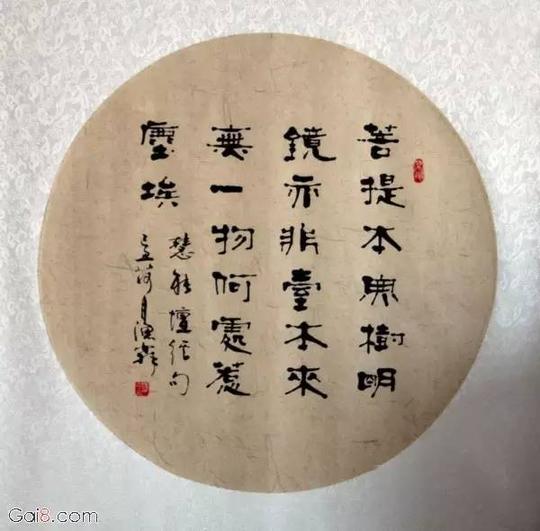 菩提本無樹明
鏡亦非臺本來
無一物何處惹
塵埃
慧能壇經句
Gai8.com